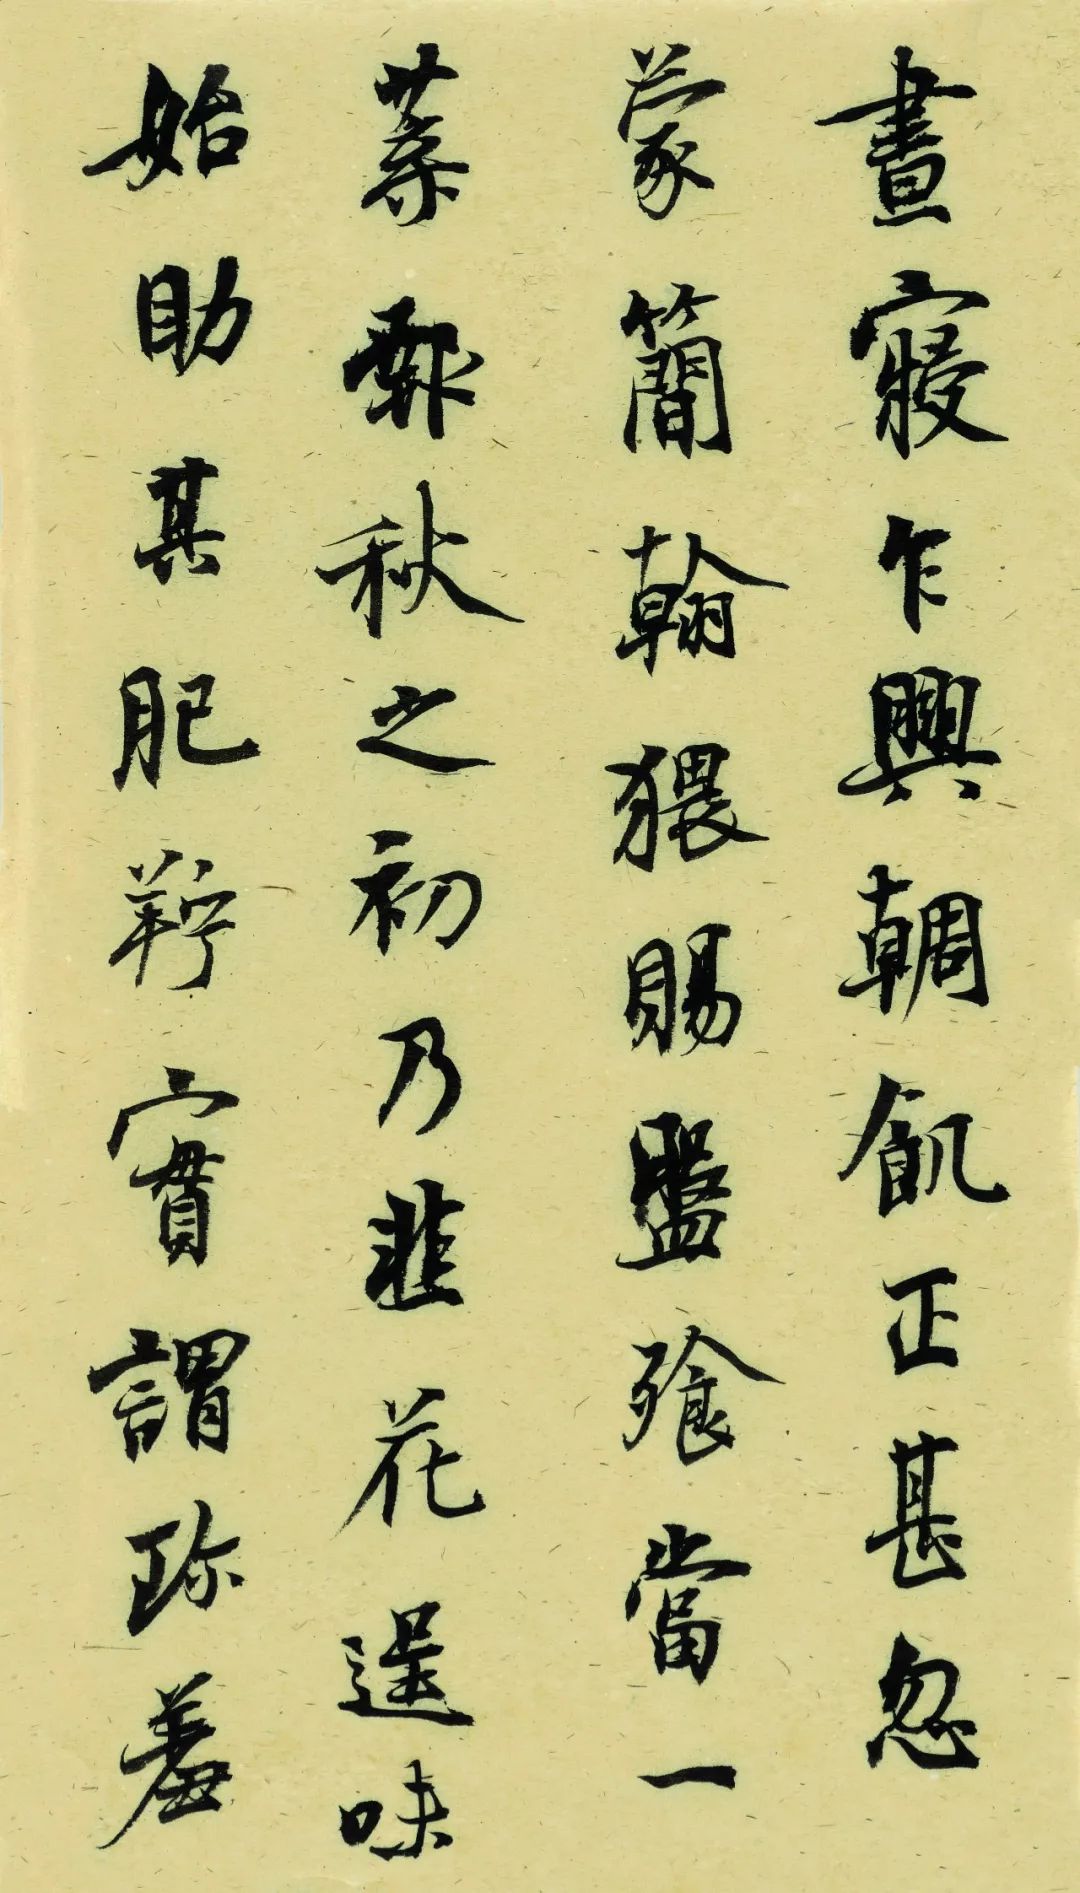 晝寢乍興輖飢正甚忽
蒙簡翰猥賜盤飧當一
葉報秋之初乃韭花逞味
始助其肥羜實謂珍羞